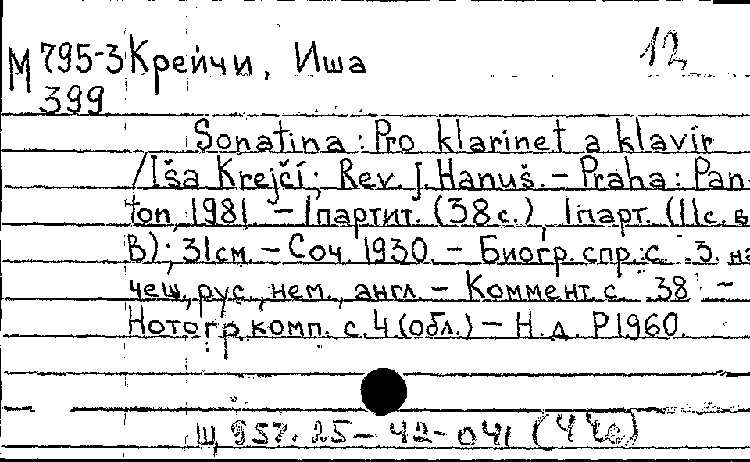 12
М 795-3 Крейчи, Иша
399
Sonatina : Pro klarinet a klavír
/ Iša Krejčí ; Rev. J. Hanuš. – Praha : Pan-
ton, 1981. – 1 партит. (38 с.), 1 парт. (11 с. в
B) ; 31 см. – Соч. 1930. – Биогр. спр.: с. 3. на
чеш., рус., нем., англ. – Коммент. с. 38 –
Нотогр. комп. с. 4 (обл.) – Н. д. P1960.
Щ 957. 25 – 42 – 041 (4Че)